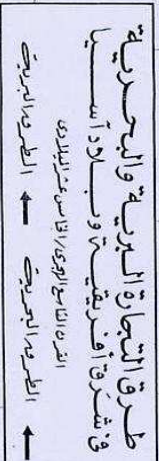 طرق التجارة البرية والبحرية
في شرق أفريقية وبلاد آسيا
القرن التاسع الهجرى/الخامس عشر الميلادى
الطرق البحرية
الطرق البرية